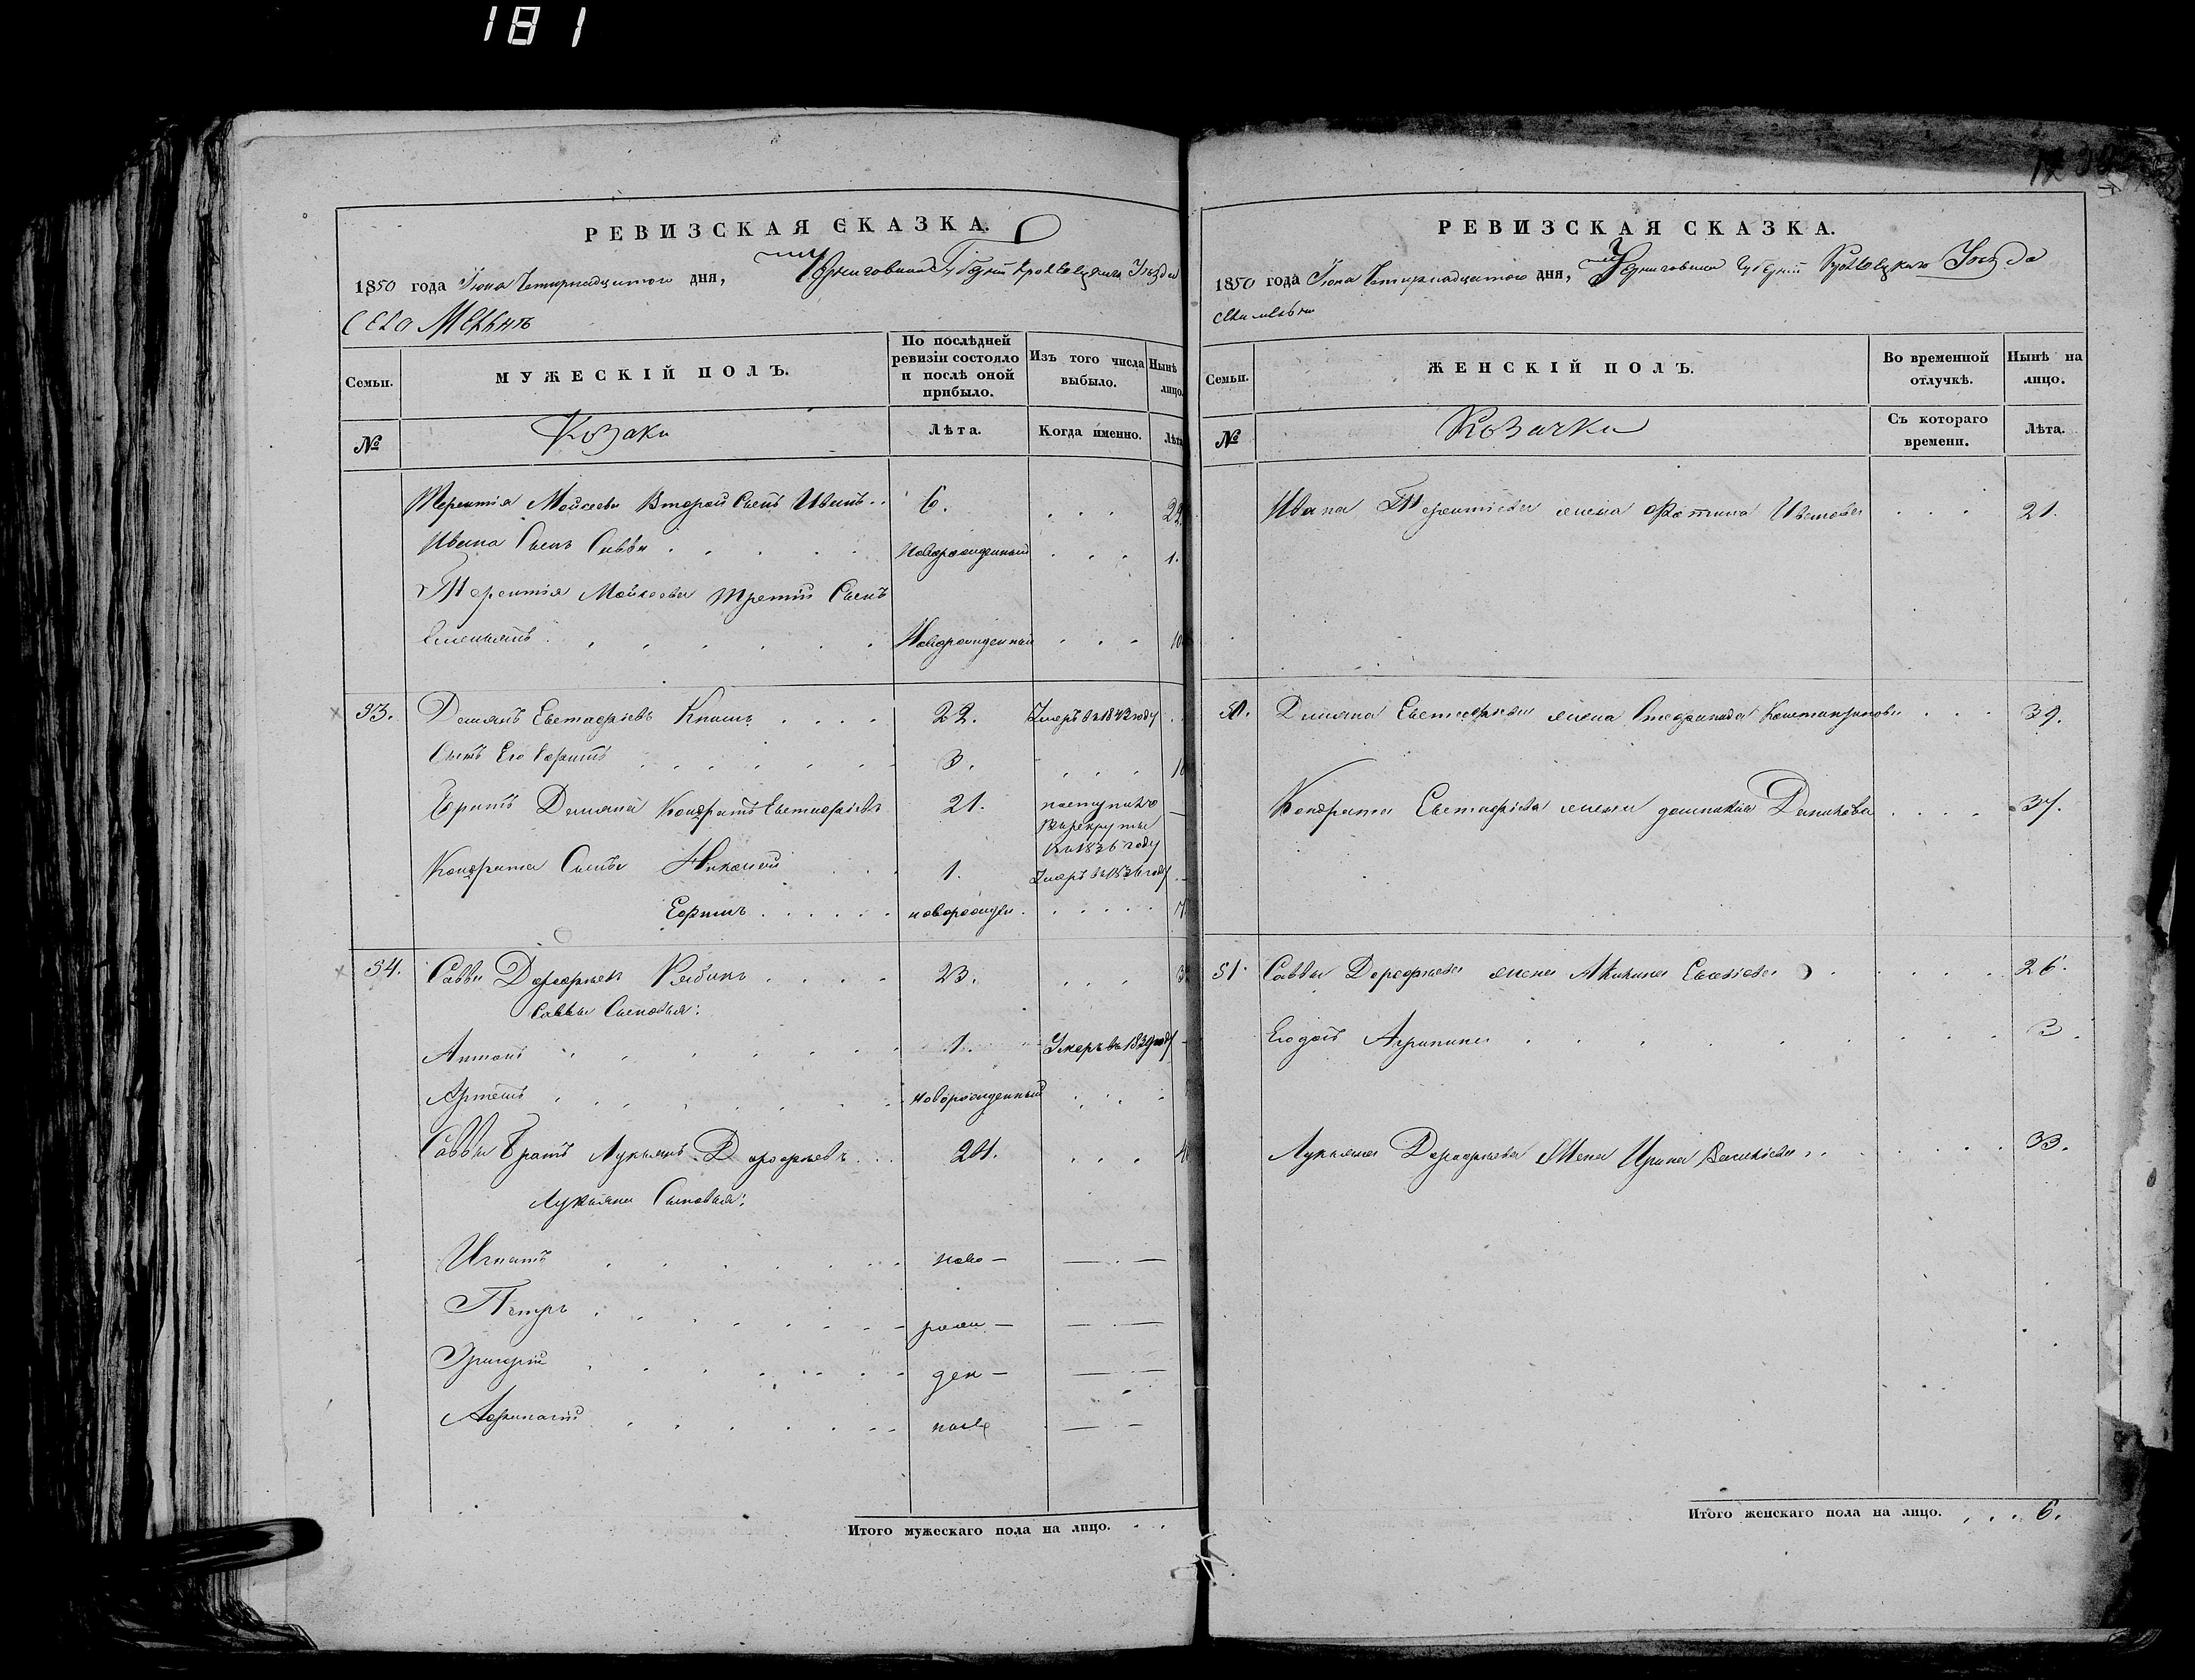 181
РЕВИЗСКАЯ СКАЗКА.
1850 года Июня Четырнадцатого дня, Черниговской Губерніи Кролевецкаго Уезда
Села Мельнѣ
Семьи.
МУЖЕСКІЙ ПОЛЪ.
По послѣдней ревизіи состояло и послѣ оной прибыло.
Изъ того числа выбыло.
Нынѣ лицо.
№
Козаки
Лѣта.
Когда именно.
Лѣта
Терентія Мойсеева Второй Сынъ Иванъ . . 6. . . .
Ивана Сынъ Савва . . . новорожденный . . . 1.
Терентія Мойсеева Третій Сынъ
. . . Новорожденный . . . 10
53. Демянъ Евстафіевъ . . . . 22. Умеръ въ 1842 году
Сынъ Его . . . 3. . . .
Братъ Демяна Кондратъ Евстафіевъ 21. поступилъ
в рекруты
въ 1836 году
Кондрата Сыны 1. Умеръ въ 1836 году
Ефимъ . . . . . новорожден. . . . . .
54. Савва Дорофіевъ Рябикъ . . . . 23. . . .
Саввы Сыновья:
Антонъ . . . 1. Умеръ въ 1839 году
Артемъ . . . новорожденный . . .
Саввы Братъ Лукьянъ Дорофіевъ . . 24. . . .
Лукьяна Сыновья:
Игнатъ . . . ново —
Петръ . . . рож —
Григорій . . . ден —
Афанасій . . . ные
Итого мужескаго пола на лицо. . . .
РЕВИЗСКАЯ СКАЗКА.
1850 года Июня Четырнадцатого дня, Черниговской Губерніи Кролевецкаго Уезда
Села Мельни
Семьи.
ЖЕНСКІЙ ПОЛЪ.
Во временной отлучкѣ.
Нынѣ на лицо.
№
Козачки
Съ котораго времени.
Лѣта.
Ивана Терентіева жена Фотина Иванова . . . 21.
50. Демяна Евстафіева жена Степанида Константинова . . . 39.
Кондрата Евстафіева жена Домникія . . . 37.
51. Саввы Дорофіева жена . . . 26.
Его дочь Агрипина . . . 3.
Лукьяна Дорофіева Жена Ирина . . . 33.
Итого женскаго пола на лицо. . . . 6.